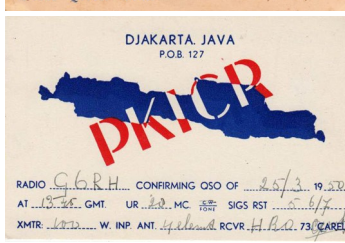 DJAKARTA. JAVA
P.O.B. 127
PK1CR
RADIO G6RH CONFIRMING QSO OF 25/3 1950
AT GMT. UR MC. CW FONE SIGS RST 5 6/7
XMTR: 100 W. INP. ANT. RCVR HRO 73 CAREL